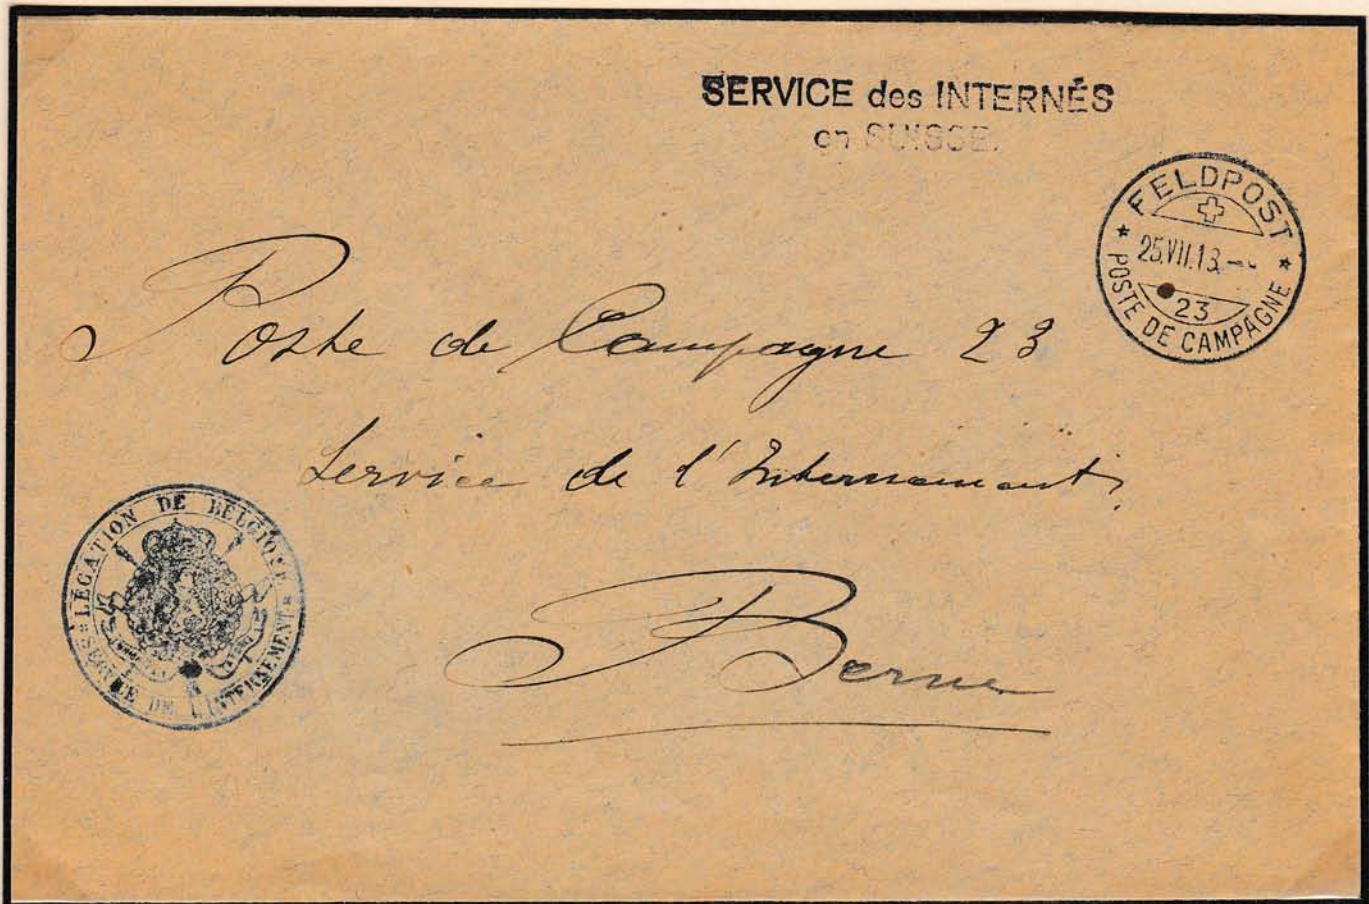 SERVICE des INTERNÉS
en SUISSE.
FELDPOST
25.VII.18.
23
POSTE DE CAMPAGNE
Poste de Campagne 23
Service de l'Internement
Berne
LÉGATION DE BELGIQUE
SERVICE DE L'INTERNEMENT